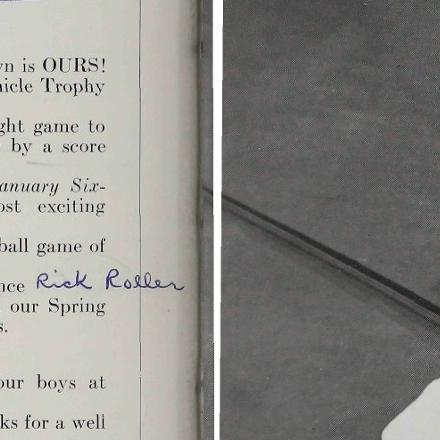 n is OURS!
icle Trophy
ght game to
by a score
anuary Six-
ost exciting
ball game of
nce Rick Roller
our Spring
s.
our boys at
ks for a well